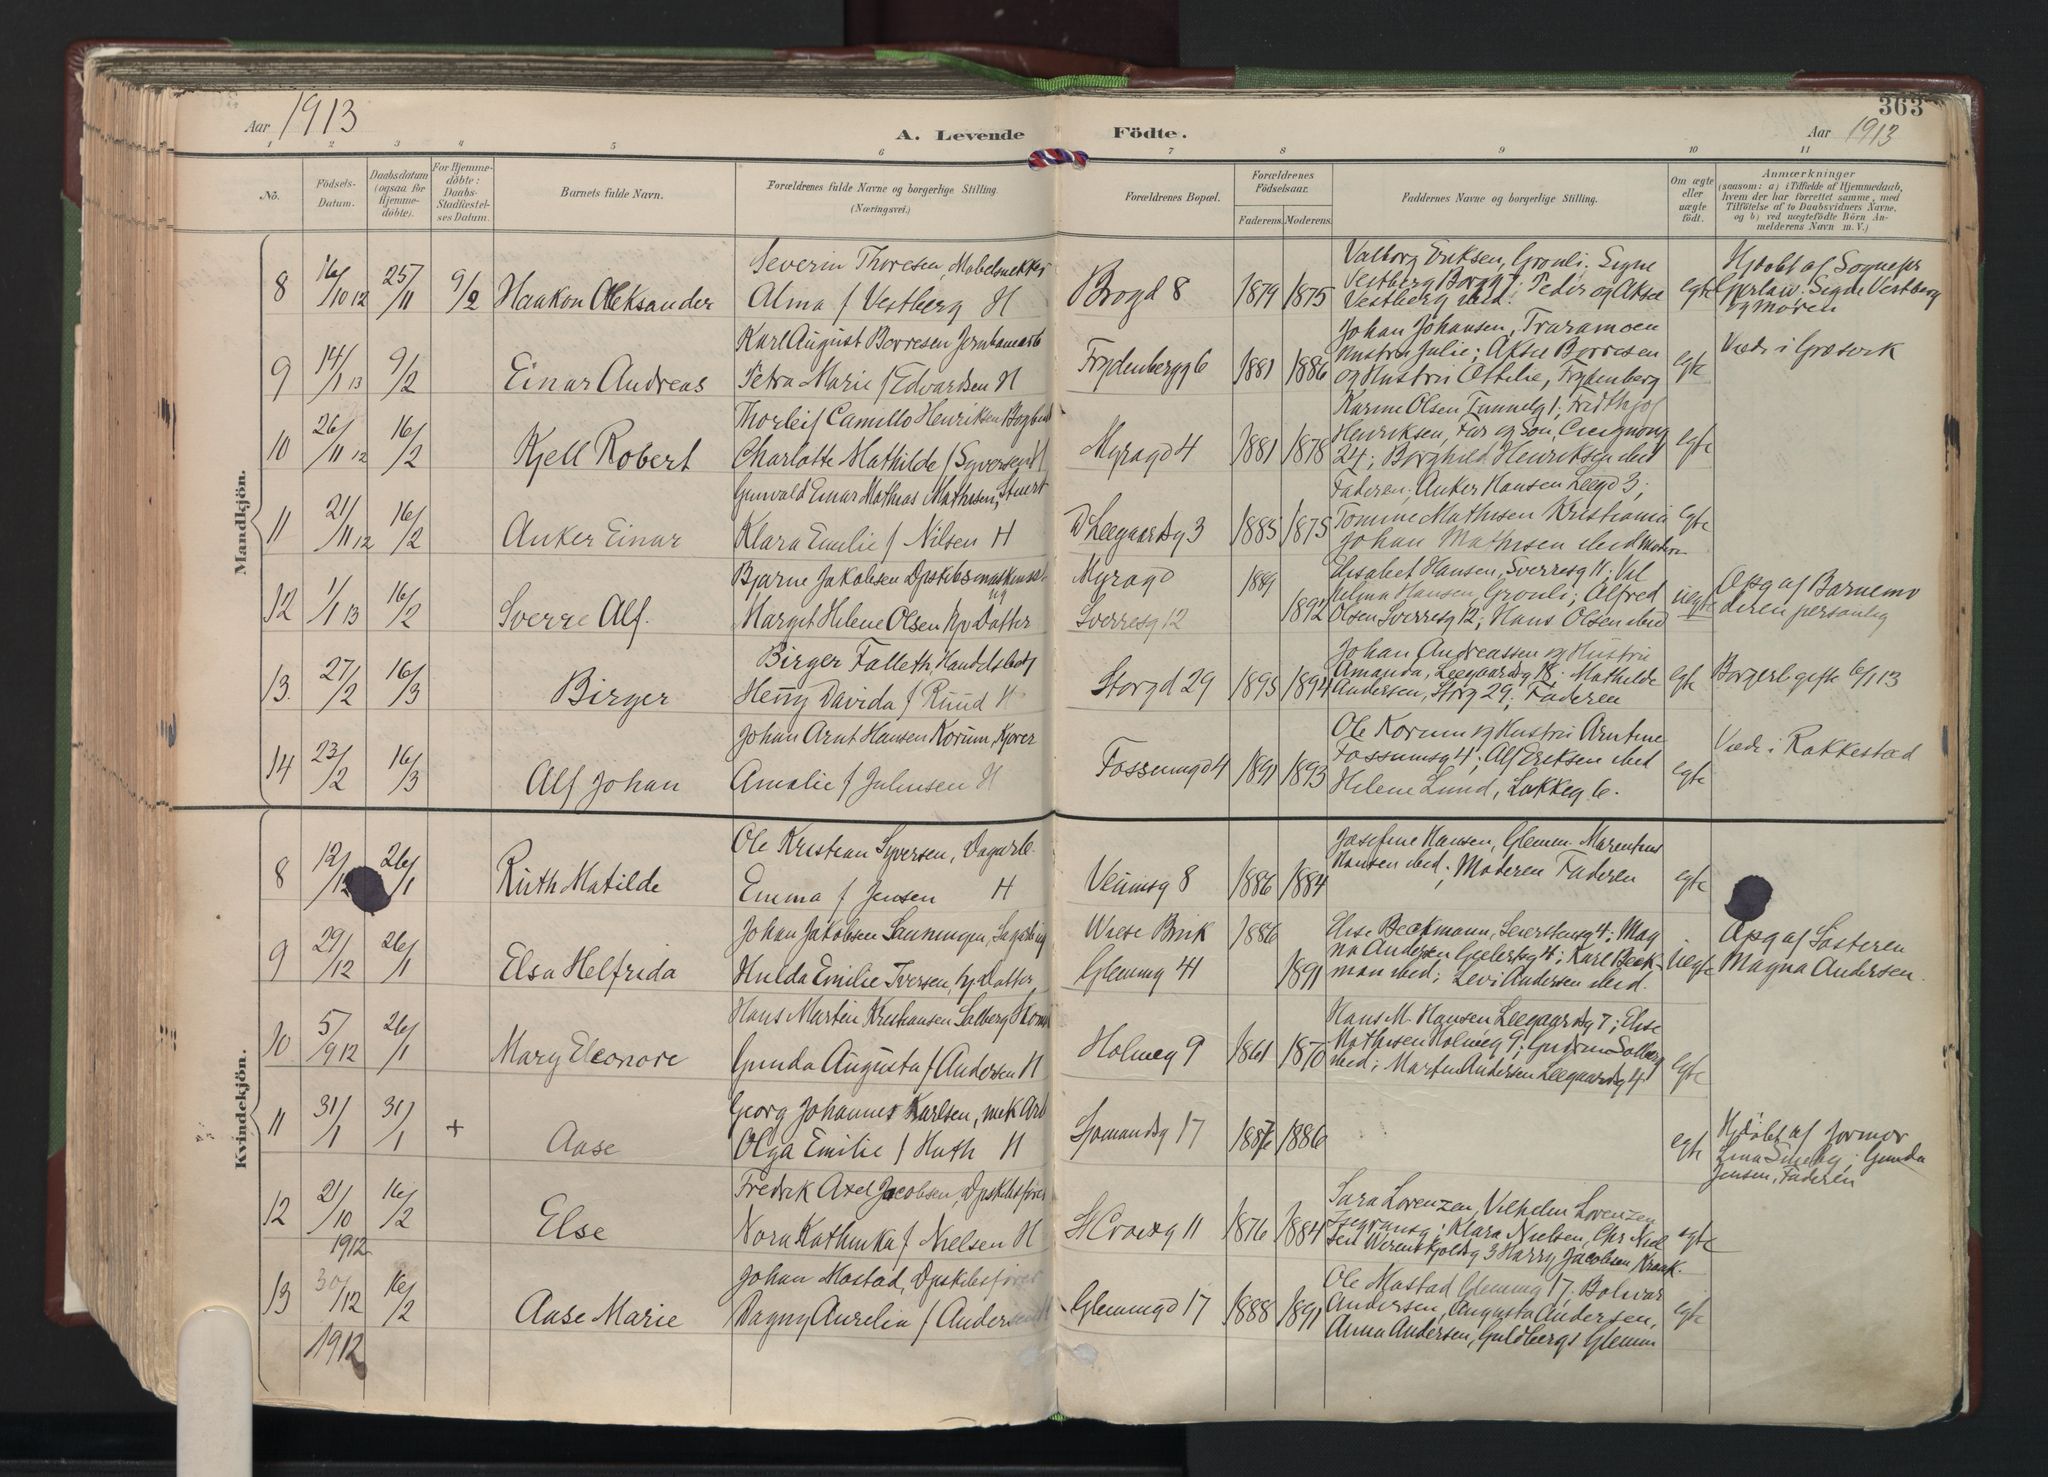 363
Aar 1913
A. Levende Födte.
Aar 1913
1 2 3 4 5 6 7 8 9 10 11
No.
Födsels-
Datum.
Daabsdatum
(ogsaa for
Hjemme-
döbte).
For Hjemme-
döbte:
Daabs-
Stadfæstel-
ses Datum.
Barnets fulde Navn.
Forældrenes fulde Navne og borgerlige Stilling.
(Næringsvei.)
Forældrenes Bopæl.
Forældrenes
Födselsaar.
Faderens. Moderens.
Faddernes Navne og borgerlige Stilling.
Om ægte
eller
uægte
födt.
Anmærkninger
(saasom: a) i Tilfælde af Hjemmedaab,
hvem der har forrettet samme, med
Tilföielse af to Daabsvidners Navne,
og b) ved uægtefödte Börn An-
melderens Navn m. V.)
Mandkjön.
8 16/10 12 25/11 9/2 Haakon Aleksander
Severin Thoresen, Møbelsnekker
Alma f Vestberg H
Brogd 8 1879 1875
Valborg Eriksen, Grønli; Signe
Vestberg Borgg 7; Peder og Aksel
Vestberg ibid.
egte
Hjdøbt af Sognepr
Gerlow: Signe Vestberg
og Moren
9 14/1 13 9/2 Einar Andreas
Karl August Borresen Jernbanearb
Petra Marie f Edvardsen H
Frydenbergg 6 1881 1886
Johan Johansen, Traramoen
Hustru Julie; Aksel Borresen
og Hustru Ottilie, Frydenberg
egte
Viede i Græsvik
10 26/11 12 16/2 Kjell Robert
Thorleif Camillo Henriksen Bogbind
Charlotte Mathilde f Syversen H
Myragd 4 1881 1878
Karine Olsen Tunnelg 1; Fridthjof
Henriksen, Far og Søn,
24; Borghild Henriksen ibid
Faderen;
egte
11 21/11 12 16/2 Anker Einar
Gunvald Einar Mathias Mathisen, Stuert
Klara Emilie f Nilsen H
Leegaardsg 3 1885 1875
Anker Hansen Leegd 3;
Tomine Mathisen Kristiania
Johan Mathisen ibid Moderen
egte
12 1/1 13 16/2 Sverre Alf.
Bjarne Jakobsen Dpskibsmaskinist
og
Margit Helene Olsen Hv Datter
Myragd 1889
Sverresg 12 1892
Elisabet Hansen, Sverresg 11; Val
Hansen, Grønli; Alfred
Olsen Sverresg 12; Hans Olsen ibid
uegte
Opg af Barnemo
deren personlig
13. 27/2 16/3 Birger
Birger Falleth, Handelsbetj
Henny Davida f Ruud H
Storgd 29 1895 1894
Johan Andreassen og Hustru
Amanda, Leegaardsg 18; Mathilde
Andersen, Storg 29; Faderen
egte
Borgerl gifte 6/1 13
14 23/2 16/3 Alf Johan
Johan Arnt Hansen Korum, Kjører
Amalie f Julinsen H
Fossumgd 4 1891 1893
Ole Korum og Hustru Arntine
Fossumsg 4; Alf Eriksen ibid
Helene Lund, Løkkeg 6.
egte
Viede i Rakkestad
Kvindekjön.
8 12/12 26/1 Ruth Matilde
Ole Kristian Syversen, Dagarb.
Emma f Jensen H
Veumsg 8 1886 1884
Josefine Hansen, Glemm. Marentius
Hansen ibid; Moderen Faderen
egte
9 29/12 26/1 Elsa Helfrida
Johan Jakobsen
Hulda Emilie Iversen, hj Datter
Wiese Brik 1886
Glemmg 41 1891
Else Beckmann, 4; Mag
na Andersen Geelertsg 4; Karl Beck-
man ibid; Levi Andersen ibid.
uegte
Opg af Søsteren
Magna Andersen.
10 5/9 12 26/1 Mary Eleonore
Hans Martin Kristiansen Solberg
Gunda Augusta f Andersen H
Holmeg 9 1861 1870
Hans M. Hansen Leegaardsg 7; Else
Mathisen Holmeg 9; Gudrun Solberg
ibid; Martin Andersen Leegaardsg 4
egte
11 31/1 31/1 + Aase
Georg Johannes Karlsen, mek Arb
Olga Emilie f Huth H
Sjømandsg 17 1886 1886
egte
Hjdøbt af Jormor
Lina; Gunda
Jensen, Faderen
12 21/10 1912 16/2 Else
Fredrik Axel Jacobsen, Dpskibsfører
Nora Kathinka f Nielsen H
St Croixg 11 1876 1884
Sara Lorenzen, Vilhelm Lorenzen
Isegransg; Klara Nielsen, Chr Niel
sen Werenskjoldsg 3 Harry Jacobsen Kraak.
egte
13 30/12 1912 16/2 Aase Marie
Johan Mastad, Dpskibsfører
Dagny Aurelia f Andersen H
Glemmgd 17 1888 1891
Ole Mastad Glemmg 17. Bolivar
Andersen, Augusta Andersen,
Anna Andersen, Guldbergs Glemm
egte